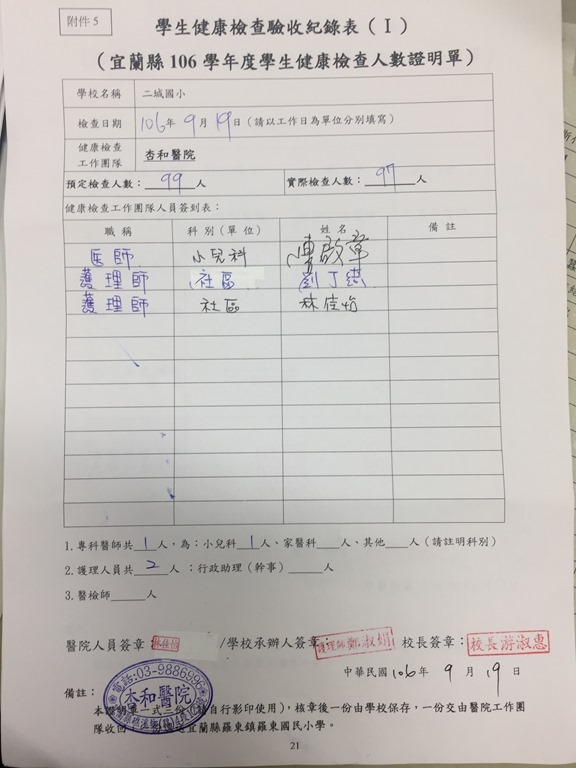 附件 5
學生健康檢查驗收紀錄表（I）
（宜蘭縣 106 學年度學生健康檢查人數證明單）
學校名稱 二城國小
檢查日期 106年 9月 19日（請以工作日為單位分別填寫）
健康檢查工作團隊 杏和醫院
預定檢查人數：99人 實際檢查人數：97人
健康檢查工作團隊人員簽到表：
職稱 科別（單位） 姓名 備註
医師 小兒科 啟章
護理師 社區 劉丁
護理師 社區 林佳怡
1.專科醫師共1人，為：小兒科1人、家醫科___人、其他___人（請註明科別）
2.護理人員共2人：行政助理（幹事）_____人
3.醫檢師_____人
醫院人員簽章：林佳怡/學校承辦人簽章：護理師鄭淑娟 校長簽章：校長游淑惠
中華民國106年 9月 19日
電話:03-9886996
杏和醫院
備註：
本證明單一式三份（請自行影印使用），核章後一份由學校保存，一份交由醫院工作團
隊收回，一份逕送宜蘭縣羅東鎮羅東國民小學。
21